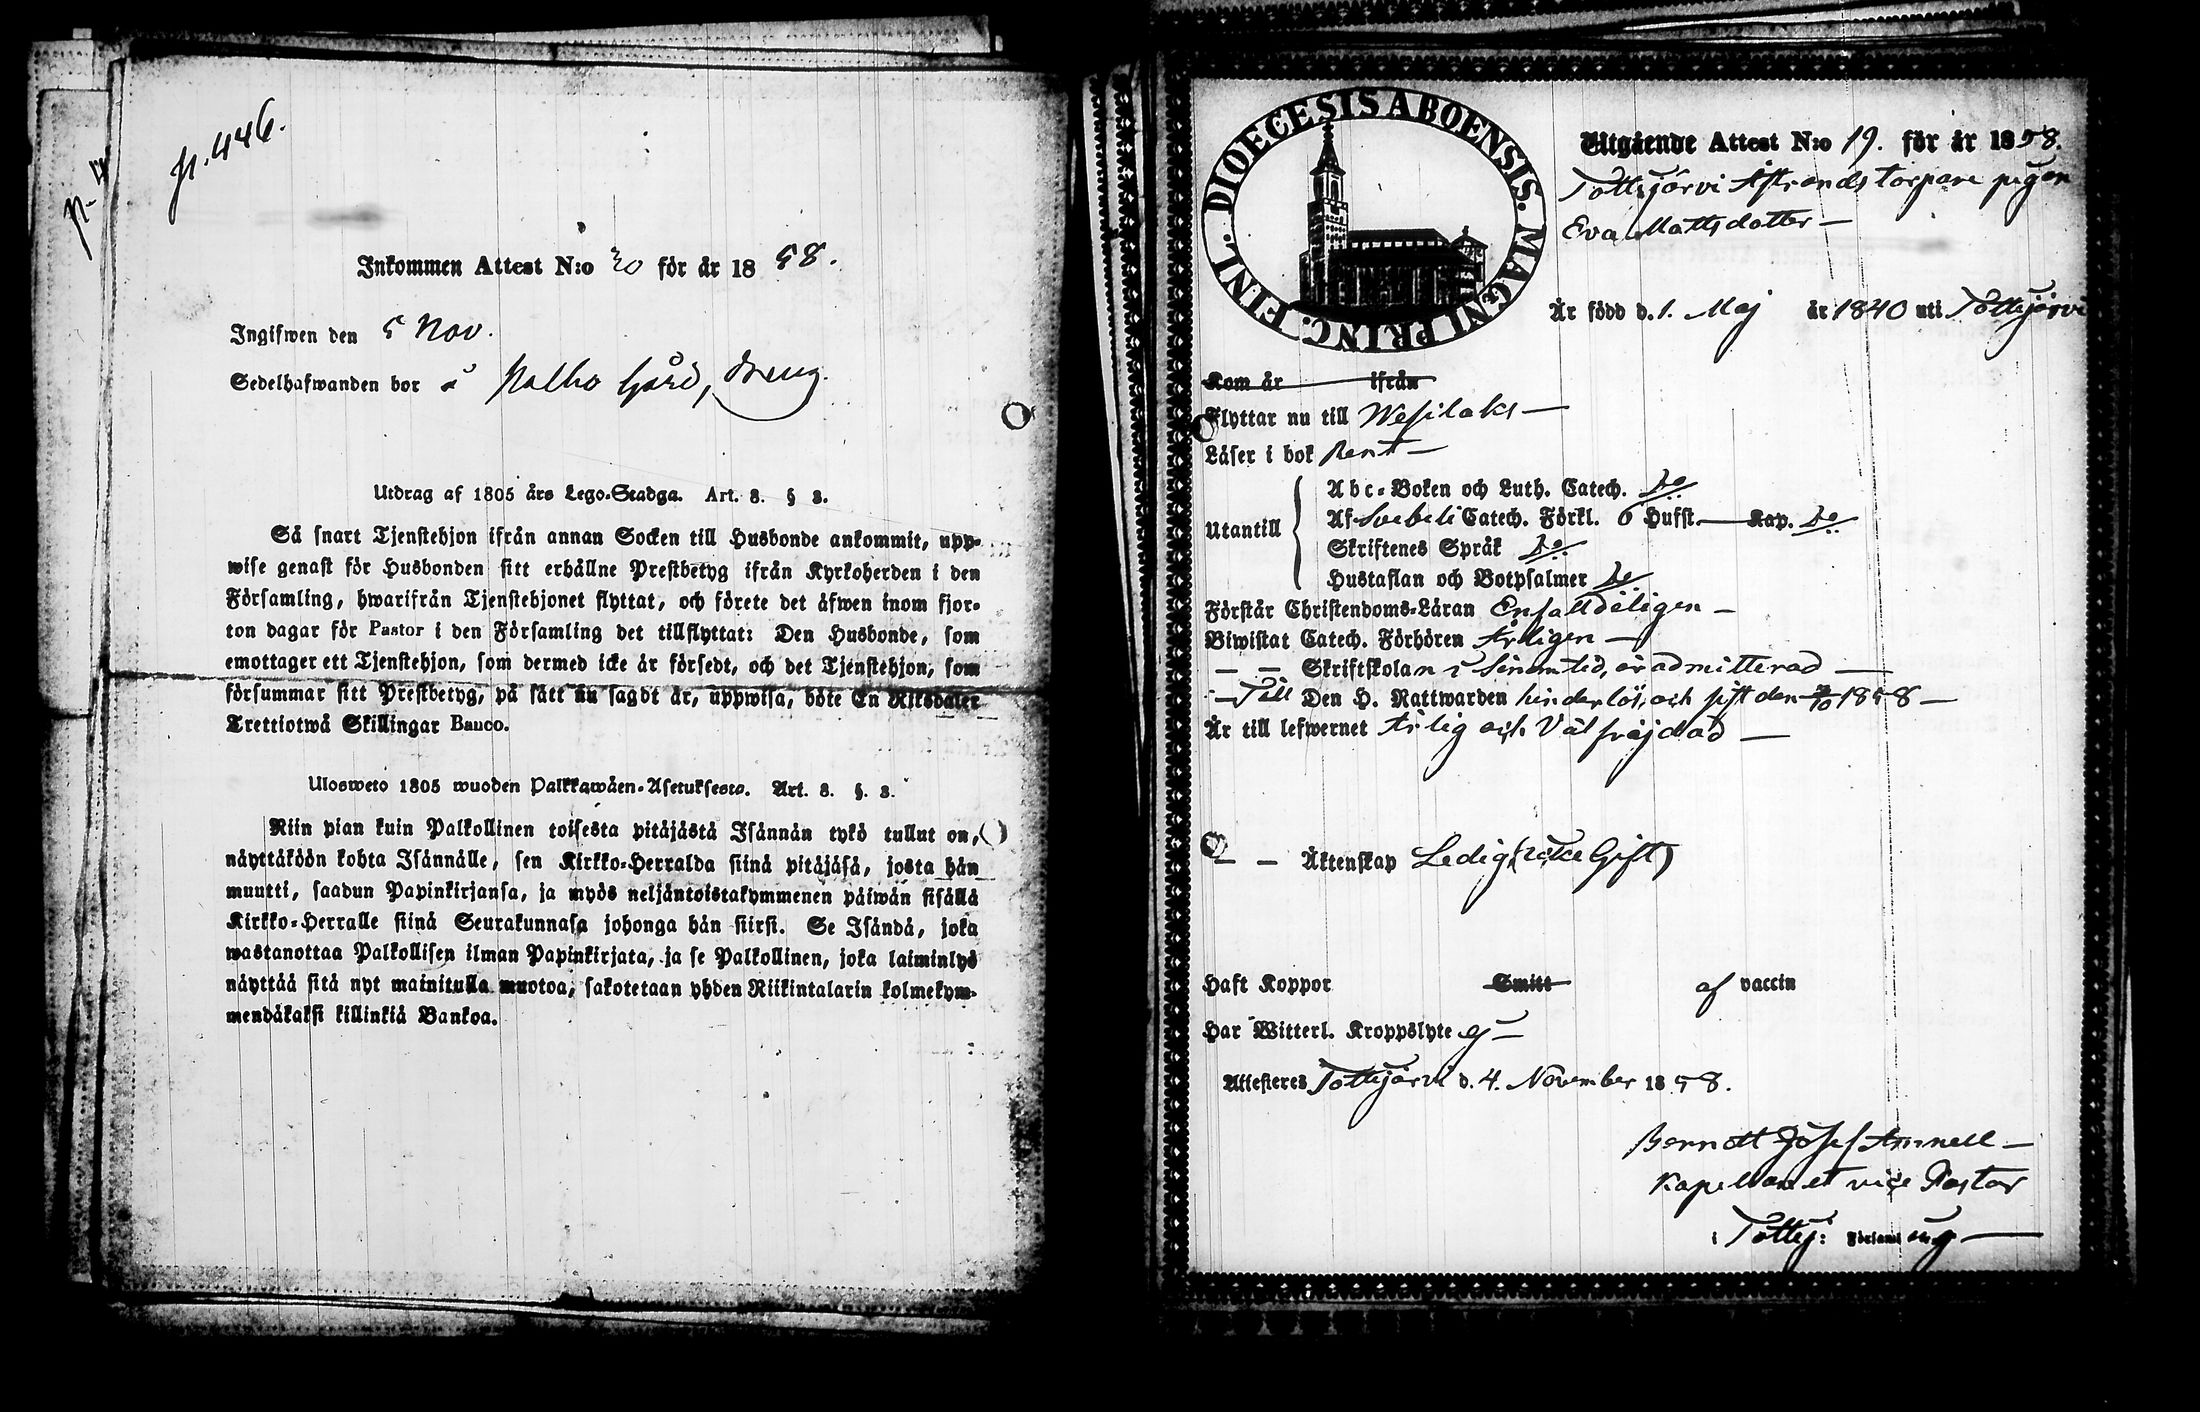 p. 446.
Inkommen Attest N:o 20 för år 1858.
Ingifwen den 5 Nov.
Sedelhafwanden bor å Palho Gård, dreng.
Utdrag af 1805 års Lego-Stadga. Art. 8. § 3.
Så snart Tjenstehjon ifrån annan Socken till Husbonde ankommit, upp-
wise genast för Husbonden sitt erhållne Prestbetyg ifrån Kyrkoherden i den
Församling, hwarifrån Tjenstehjonet flyttat, och förete det äfwen inom fjor-
ton dagar för Pastor i den Församling det tillflyttat: Den Husbonde, som
emottager ett Tjenstehjon, som dermed icke är försedt, och det Tjenstehjon, som
försummar sitt Prestbetyg, på sätt nu sagdt är, uppwisa, böte En Riksdaler
Trettiotwå Skillingar Banco.
Ulosweto 1805 wuoden Palkkawäen-Asetuksesta. Art. 8. §. 3.
Niin pian kuin Palkollinen toisesta pitäjästä Isännän tykö tullut on,
näyttäköön kohta Isännälle, sen Kirkko-Herralda siinä pitäjäsä, josta hän
muutti, saadun Papinkirjansa, ja myös neljäntoistakymmenen päiwän sisällä
Kirkko-Herralle siinä Seurakunnasa johonga hän siirsi. Se Isändä, joka
wastanottaa Palkollisen ilman Papinkirjata, ja se Palkollinen, joka laiminlyö
näyttää sitä nyt mainitulla muotoa, sakotetaan yhden Riikintalarin kolmekym-
mendäkaksi killinkiä Bankoa.
DIOECESIS ABOENSIS. MAGNI PRINC. FINL.
Utgående Attest N:o 19. för år 1858.
Tottijärvi Åstrands torpare pigan
Eva Mattsdotter —
Är född d. 1. Maj år 1840 uti Tottijärvi
Kom år ifrån
Flyttar nu till Wesilaks —
Läser i bok rent —
Utantill
Abc-Boken och Luth. Catech. do
Af Svebeli Catech. Förkl. 6 Hufst. — Kap. do
Skriftenes Språk do
Hustaflan och Botpsalmer do
Förstår Christendoms-Läran Enfalldeligen —
Biwistat Catech. Förhören Årligen —
— — Skriftskolan i sinom tid, är admitterad —
— Till Den H. Nattwarden hinderlös, och sist den 1858 —
Är till lefwernet Ärlig och Väl frejdad —
— — Äktenskap Ledig (icke Gift)
Haft Koppor Smitt af vaccin
Har Witterl. Kroppslyte ej —
Attesteres Tottijärvi d. 4. November 1858.
Berndt Josef Amnell —
Kapellan et vice Pastor
i Tottij: Församling —